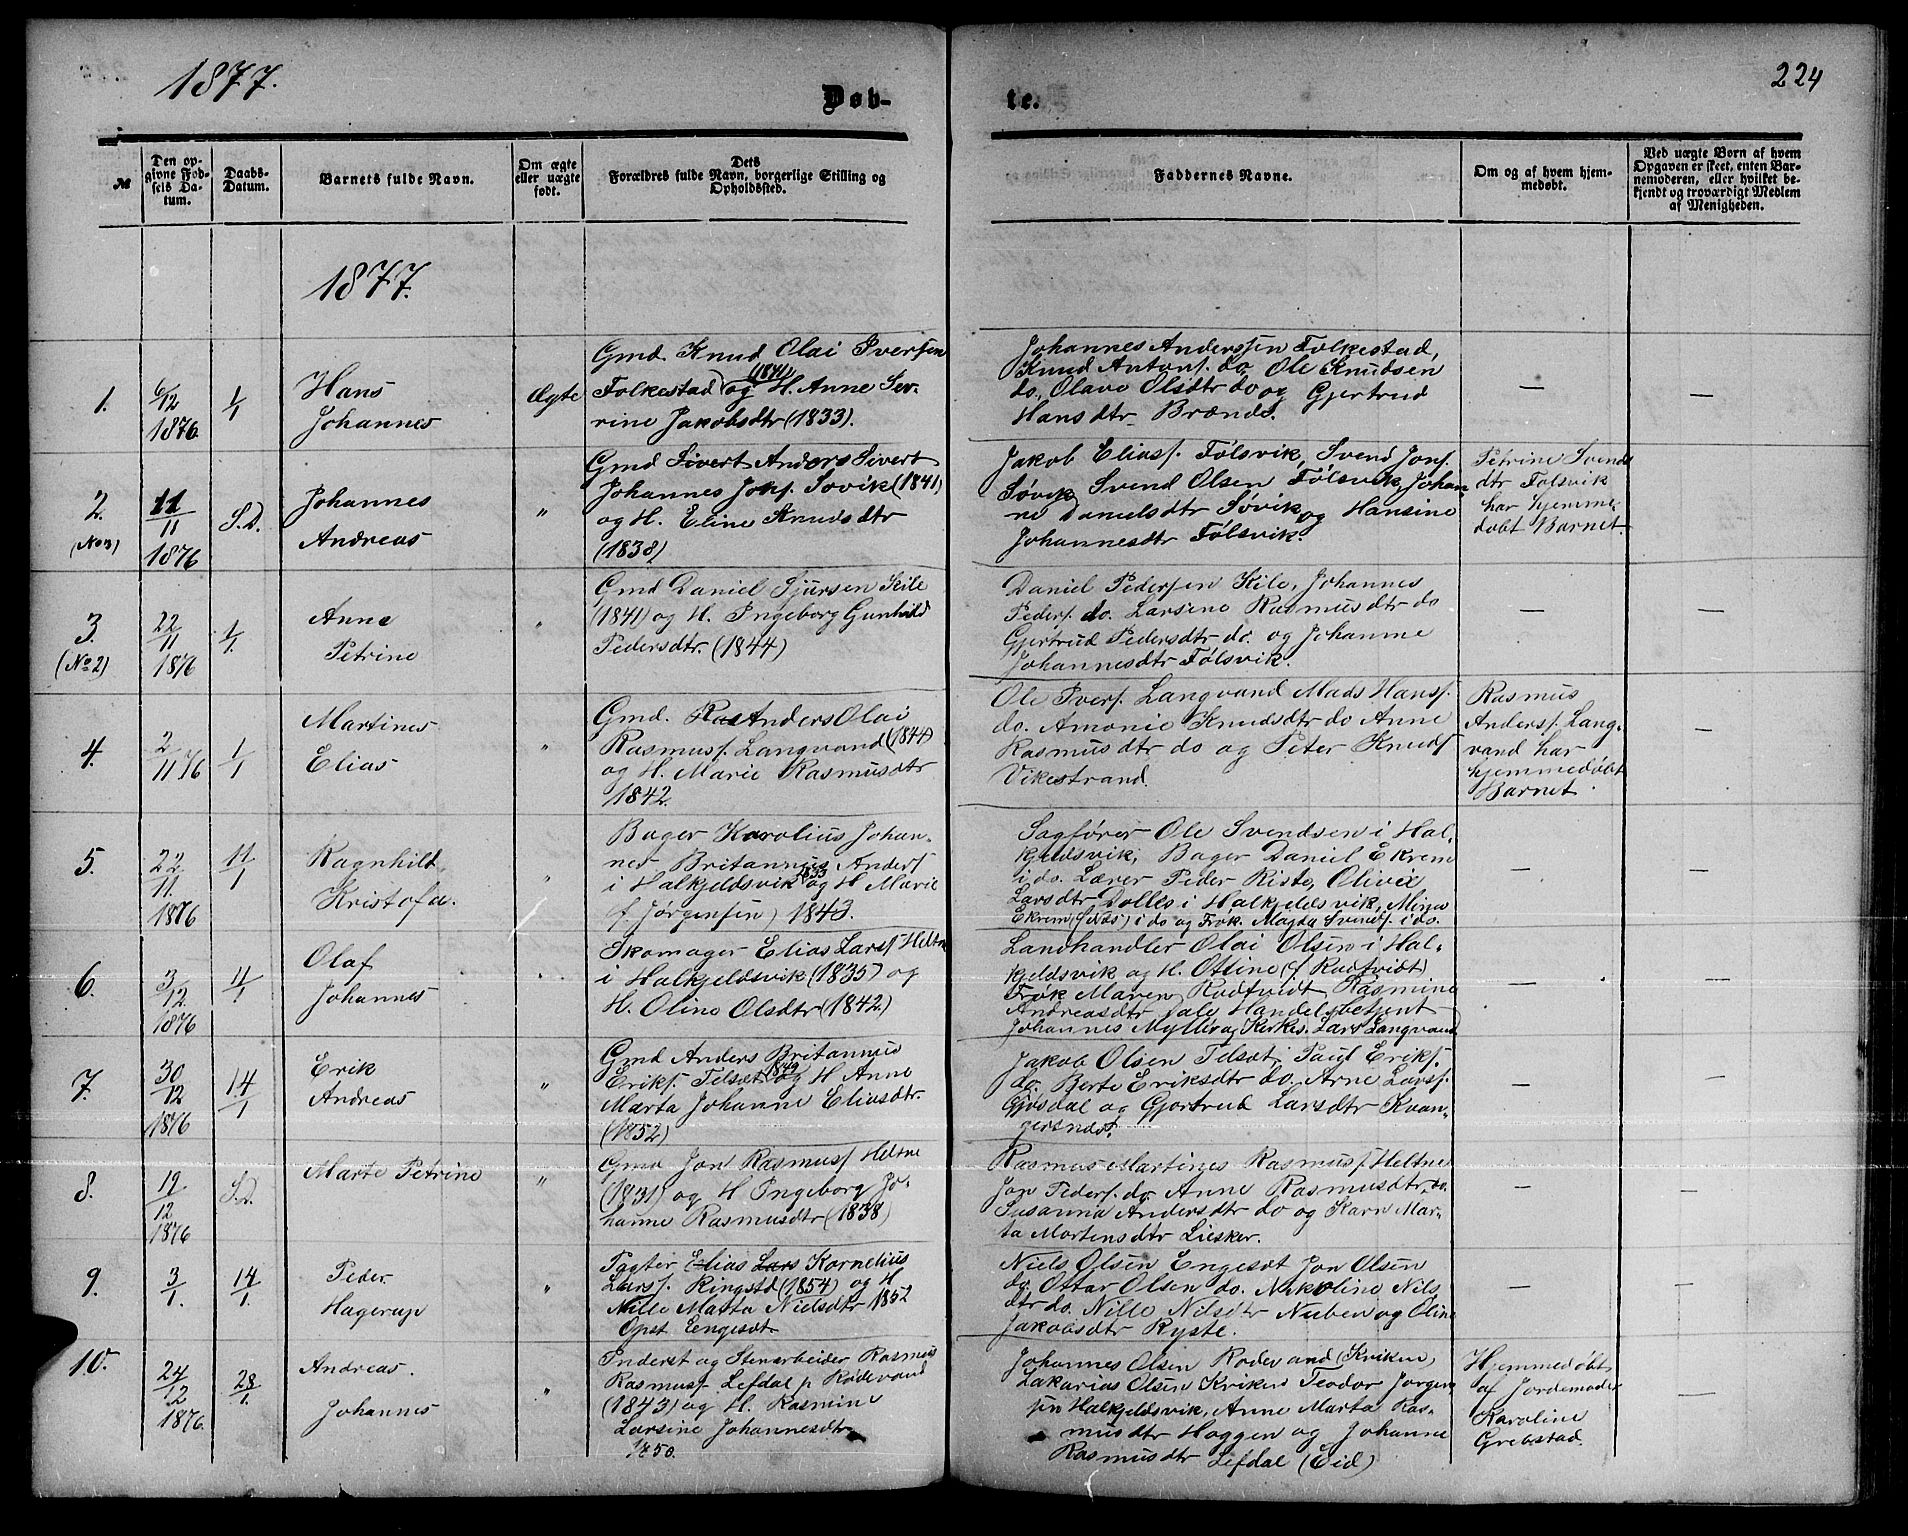 1877.
Døb-
te.
224
№
Den op-
givne Fød-
sels Da-
tum.
Daabs-
Datum.
Barnets fulde Navn.
Om ægte
eller uægte
født.
Dets
Forældres fulde Navn, borgerlige Stilling og
Opholdssted.
Faddernes Navne.
Om og af hvem hjem-
medøbt.
Ved uægte Børn af hvem
Opgaven er skeet, enten Bar-
nemoderen, eller hvilket be-
kjendt og troværdigt Medlem
af Menigheden.
1877.
1.
6/12
1876
1/1
Hans
Johannes
Ægte
Gmd. Knud Olai Iversen
Folkestad (1841) og H. Anne Sev-
rine Jakobsdtr (1833).
Johannes Anderssen Folkestad,
Knud Antons. do. Ole Knudsen
do. Olave Olsdtr do og Gjertrud
Hansdtr Brænde.
—
—
2.
(No 3)
11/11
1876
S.D.
Johannes
Andreas
"
Gmd Sivert Anders Sivert
Johannes Jons. Søvik (1841)
og H. Eline Knudsdtr
(1838)
Jakob Elias. Følsvik, Svend Jons.
Søvik Svend Olsen Følsvik, Johan-
ne Danielsdtr Søvik og Hansine
Johannesdtr Følsvik.
Petrine Svends
dtr Følsvik
har hjemme-
døbt Barnet.
3.
(No 2)
22/11
1876
1/1
Anne
Petrine
"
Gmd Daniel Sjursen Kile
(1841) og H. Ingeborg Gunhild
Pedersdtr. (1844)
Daniel Pedersen Kile, Johannes
Peders. do. Larsine Rasmusdtr do
Gjertrud Pedersdtr do. og Johanne
Johannesdtr Følsvik.
—
—
4.
2/11 76
1/1
Martines
Elias
"
Gmd. Ras Anders Olai
Rasmus. Langvand (1844)
og H. Marie Rasmusdtr
1842.
Ole Ivers. Langvand Mads Hans.
do. Amonie Knudsdtr do Anne
Rasmusdtr do og Peter Knuds
Vikestrand.
Rasmus
Anders. Lang-
vand har
hjemmedøbt
Barnet.
—
5.
22/11
1876
11/1
Ragnhild
Kristofa.
"
Bager Karolius Johan-
nes Britannius Anders
i Halkjeldsvik 1833 og H Marie
(f. Jørgensen) 1843.
Sagfører Ole Svendsen i Hal-
kjeldsvik, Bager Daniel Ekrem
i do. Lærer Peder Riste, Olivie
Larsdtr Dolles i Halkjeldsvik, Mina
Ekrem i do og Frøk. Magda Svends. i do.
—
—
6.
3/12
1876
11/1
Olaf
Johannes
"
Skomager Elias Lars. Heltne
i Halkjeldsvik (1835) og
H. Oline Olsdtr (1842)
Landhandler Olai Olsen i Hal-
kjeldsvik og H. Otline (f. Rodtvidt)
Frøk Maren Rodtvidt Rasmine
Andreasdtr Dale, Handelsbetjent
Johannes Myller og Kirkes. Lars Langvand
—
—
7.
30/12
1876
14/1
Erik
Andreas
"
Gmd Anders Britannus
Eriks. Telset 1849 og H Anne
Marta Johanne Eliasdtr.
(1852)
Jakob Olsen Telset, Paul Eriks.
do. Berte Eriksdtr do. Arne Lars.
Gjøsdal og Gjertrud Larsdtr Kvan-
gersnds.
—
—
8.
19/12
1876
S.D.
Marte Petrine
"
Gmd Jon Rasmus. Heltne
(1831) og H Ingeborg Jo-
hanne Rasmusdtr (1838)
Rasmus Martines Rasmus. Heltne
Jon Peders. do. Anne Rasmusdtr do
Susanna Andersdtr do og Karn Mar-
ta Mortensdtr Liesker.
—
—
9.
3/1.
14/1.
Peder
Hagerup
"
Pagter Elias Lars Kornelius
Lars. Ringstd (1854) og H
Nille Marta Nielsdtr 1852
Opst. Engeset.
Niels Olsen Engeset Jon Olsen
do Ottar Olsen do. Nikoline Nils
dtr do. Nille Nilsdtr Nuben og Oline
Jakobsdtr Ryste.
—
—
10.
24/12
1876.
28/1.
Andreas.
Johannes
"
Inderst og Stenarbeider Rasmus
Rasmus. Lefdal p. Rødevand
(1843) og H. Rasmine
Larsine Johannesdtr
1850.
Johannes Olsen Rødevand (Kriken)
Zakarias Olsen Kriken Teodor Jørgen
sen Halkjeldsvik, Anne Marta Ras-
musdtr Hoggen og Johanne
Rasmusdtr Lefdal (Eid)
Hjemmedøbt
af Jordemoder
Karoline
Grebstad.
—